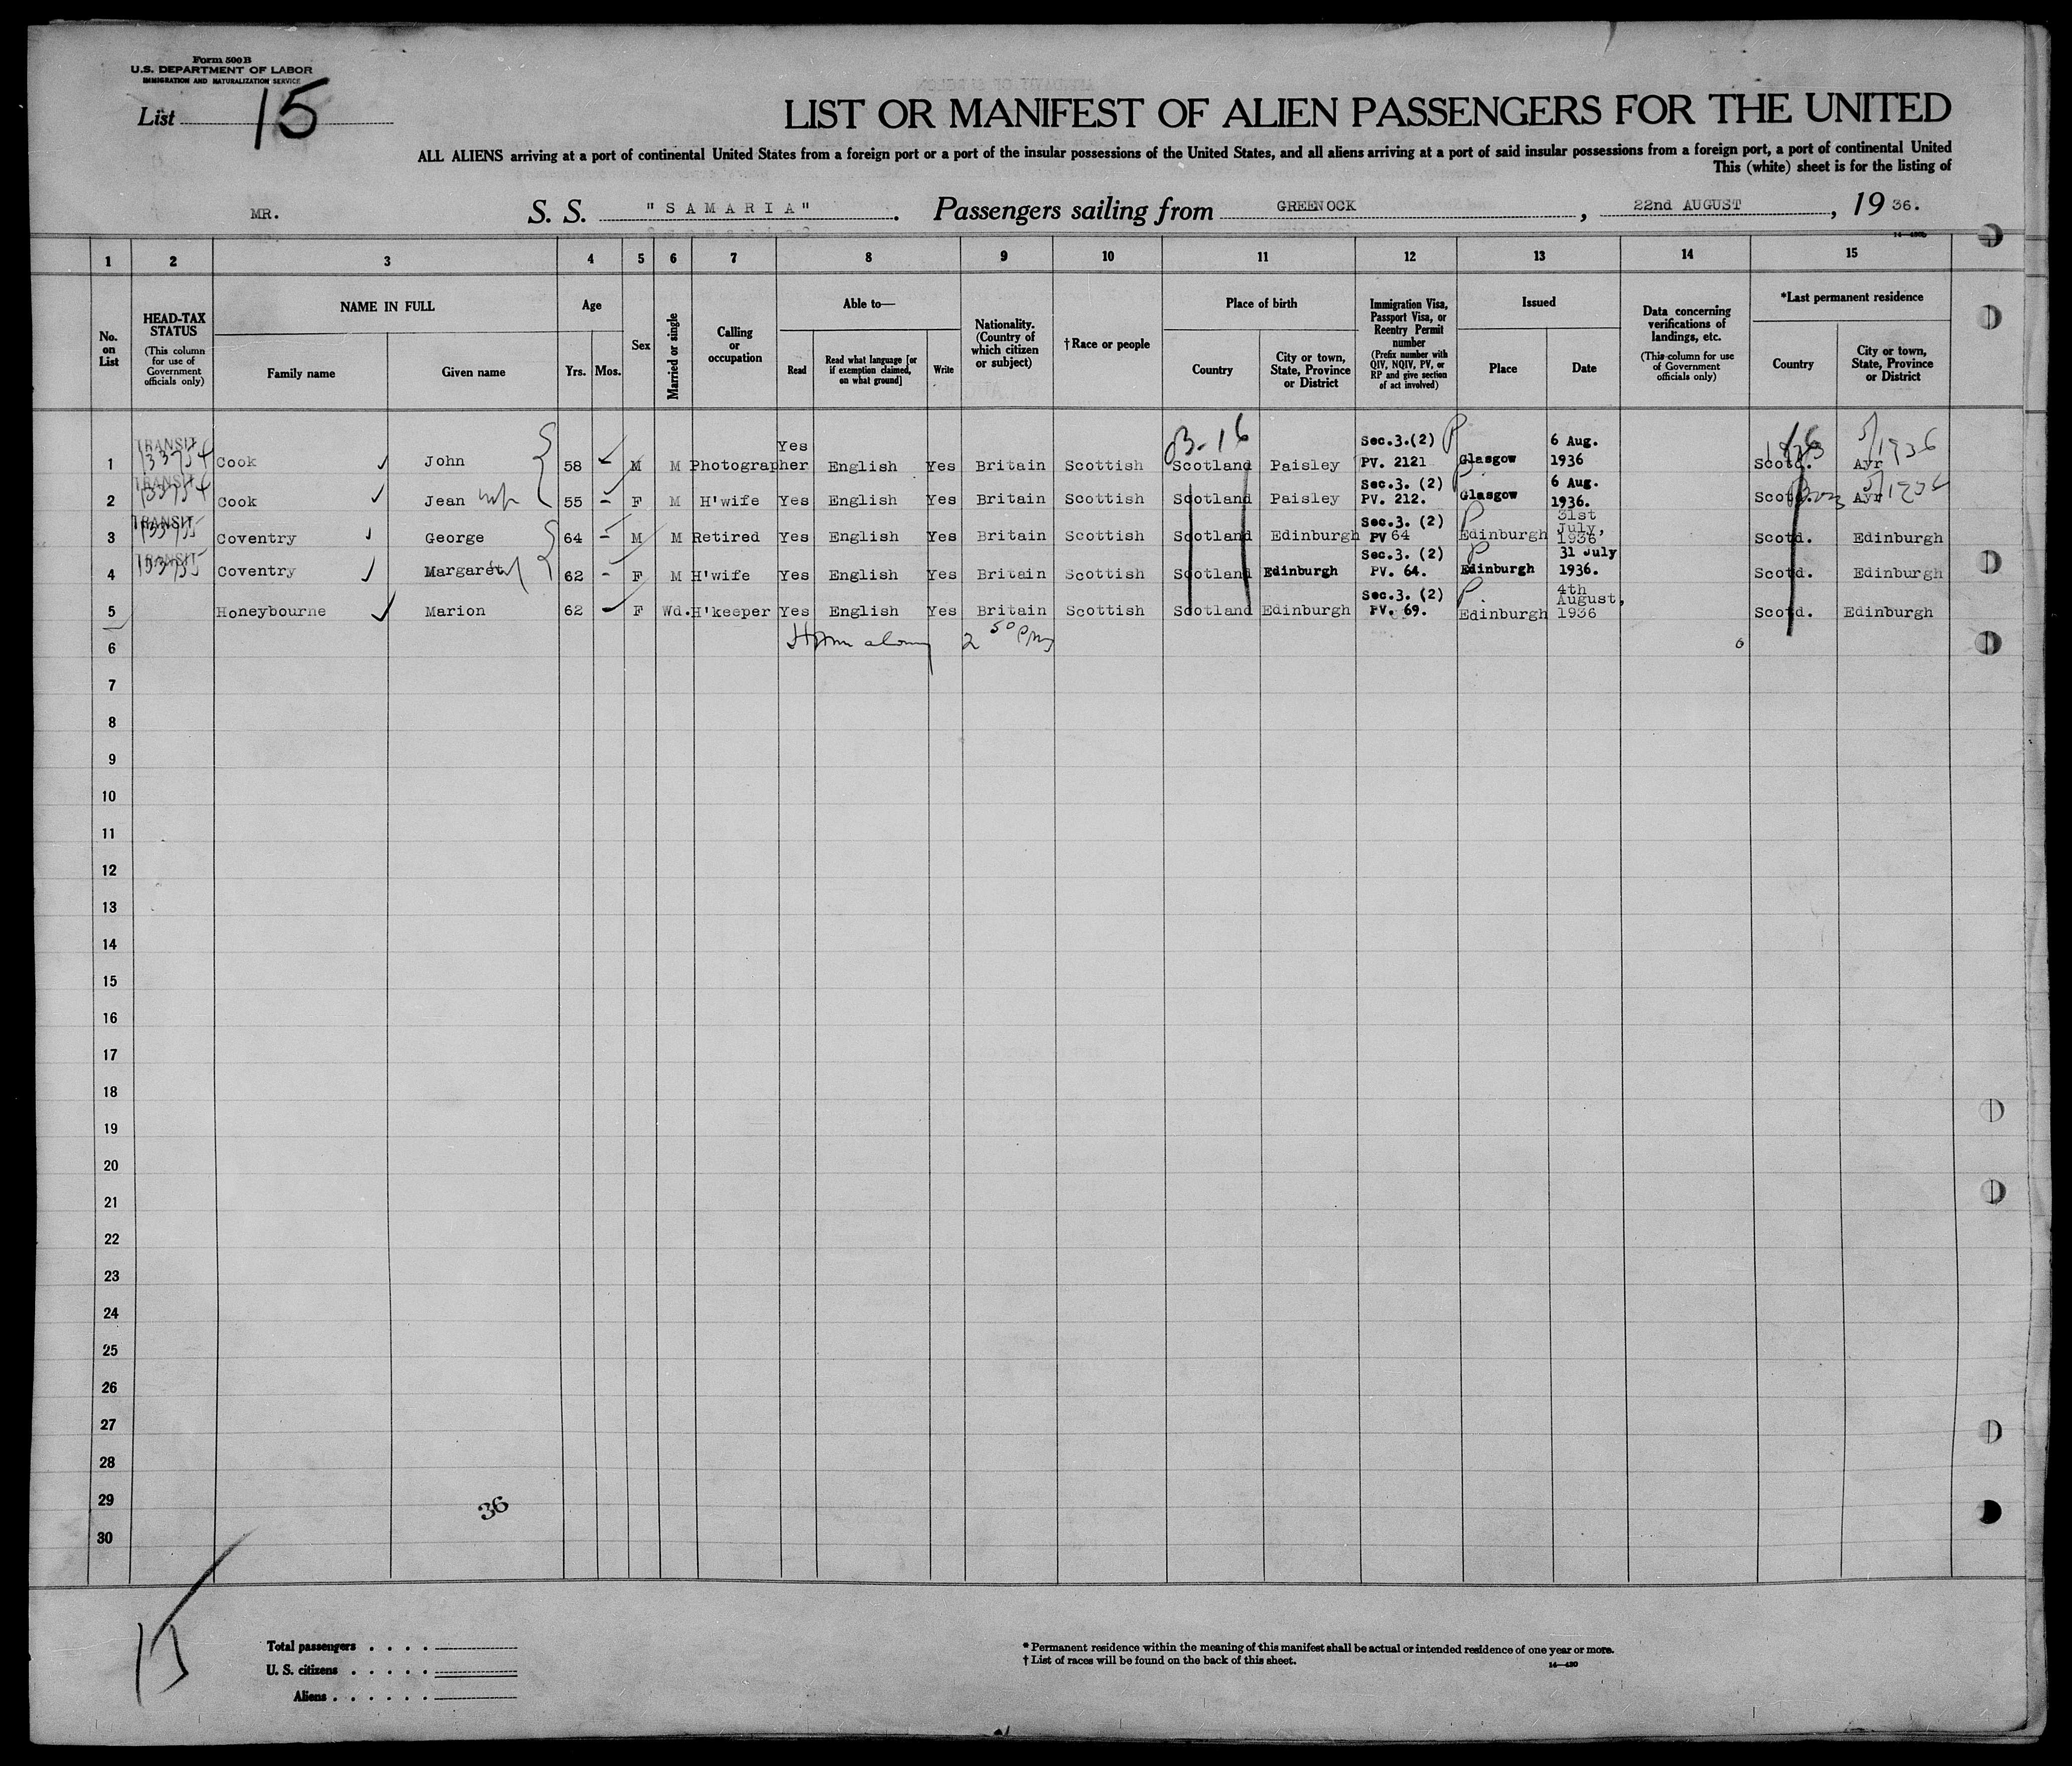 Form 500 B
U.S. DEPARTMENT OF LABOR
IMMIGRATION AND NATURALIZATION SERVICE
List 15
LIST OR MANIFEST OF ALIEN PASSENGERS FOR THE UNITED
ALL ALIENS arriving at a port of continental United States from a foreign port or a port of the insular possessions of the United States, and all aliens arriving at a port of said insular possessions from a foreign port, a port of continental United
This (white) sheet is for the listing of
MR. S. S. "SAMARIA". Passengers sailing from GREENOCK, 22nd AUGUST, 1936.
1 2 3 4 5 6 7 8 9 10 11 12 13 14 15
No. on List
HEAD-TAX STATUS (This column for use of Government officials only)
NAME IN FULL
Family name
Given name
Age
Yrs. Mos.
Sex
Married or single
Calling or occupation
Able to—
Read
Read what language [or if exemption claimed, on what ground]
Write
Nationality. (Country of which citizen or subject)
†Race or people
Place of birth
Country
City or town, State, Province or District
Immigration Visa, Passport Visa, or Reentry Permit number (Prefix number with QIV, NQIV, PV, or RP and give section of act involved)
Issued
Place
Date
Data concerning verifications of landings, etc. (This column for use of Government officials only)
*Last permanent residence
Country
City or town, State, Province or District
B-16
5/1936
1 TRANSIT 133754 Cook John 58 - M M Photographer Yes English Yes Britain Scottish Scotland Paisley Sec.3.(2) PV. 2121 P Glasgow 6 Aug. 1936 Scotd. Ayr
2 TRANSIT 133754 Cook Jean 55 - F M H'wife Yes English Yes Britain Scottish Scotland Paisley Sec.3. (2) PV. 212. P Glasgow 6 Aug. 1936. Scotd. Ayr 5/1936
3 TRANSIT 133755 Coventry George 64 - M M Retired Yes English Yes Britain Scottish Scotland Edinburgh Sec.3. (2) PV 64 P Edinburgh 31st July, 1936 Scotd. Edinburgh
4 TRANSIT 133755 Coventry Margaret 62 - F M H'wife Yes English Yes Britain Scottish Scotland Edinburgh Sec.3. (2) PV. 64. P Edinburgh 31 July 1936. Scotd. Edinburgh
5 Honeybourne Marion 62 - F Wd. H'keeper Yes English Yes Britain Scottish Scotland Edinburgh Sec.3. (2) PV. 69. P. Edinburgh 4th August, 1936 Scotd. Edinburgh
6
7
8
9
10
11
12
13
14
15
16
17
18
19
20
21
22
23
24
25
26
27
28
29
36
30
15
Total passengers
U. S. citizens
Aliens
* Permanent residence within the meaning of this manifest shall be actual or intended residence of one year or more.
† List of races will be found on the back of this sheet.
14—430